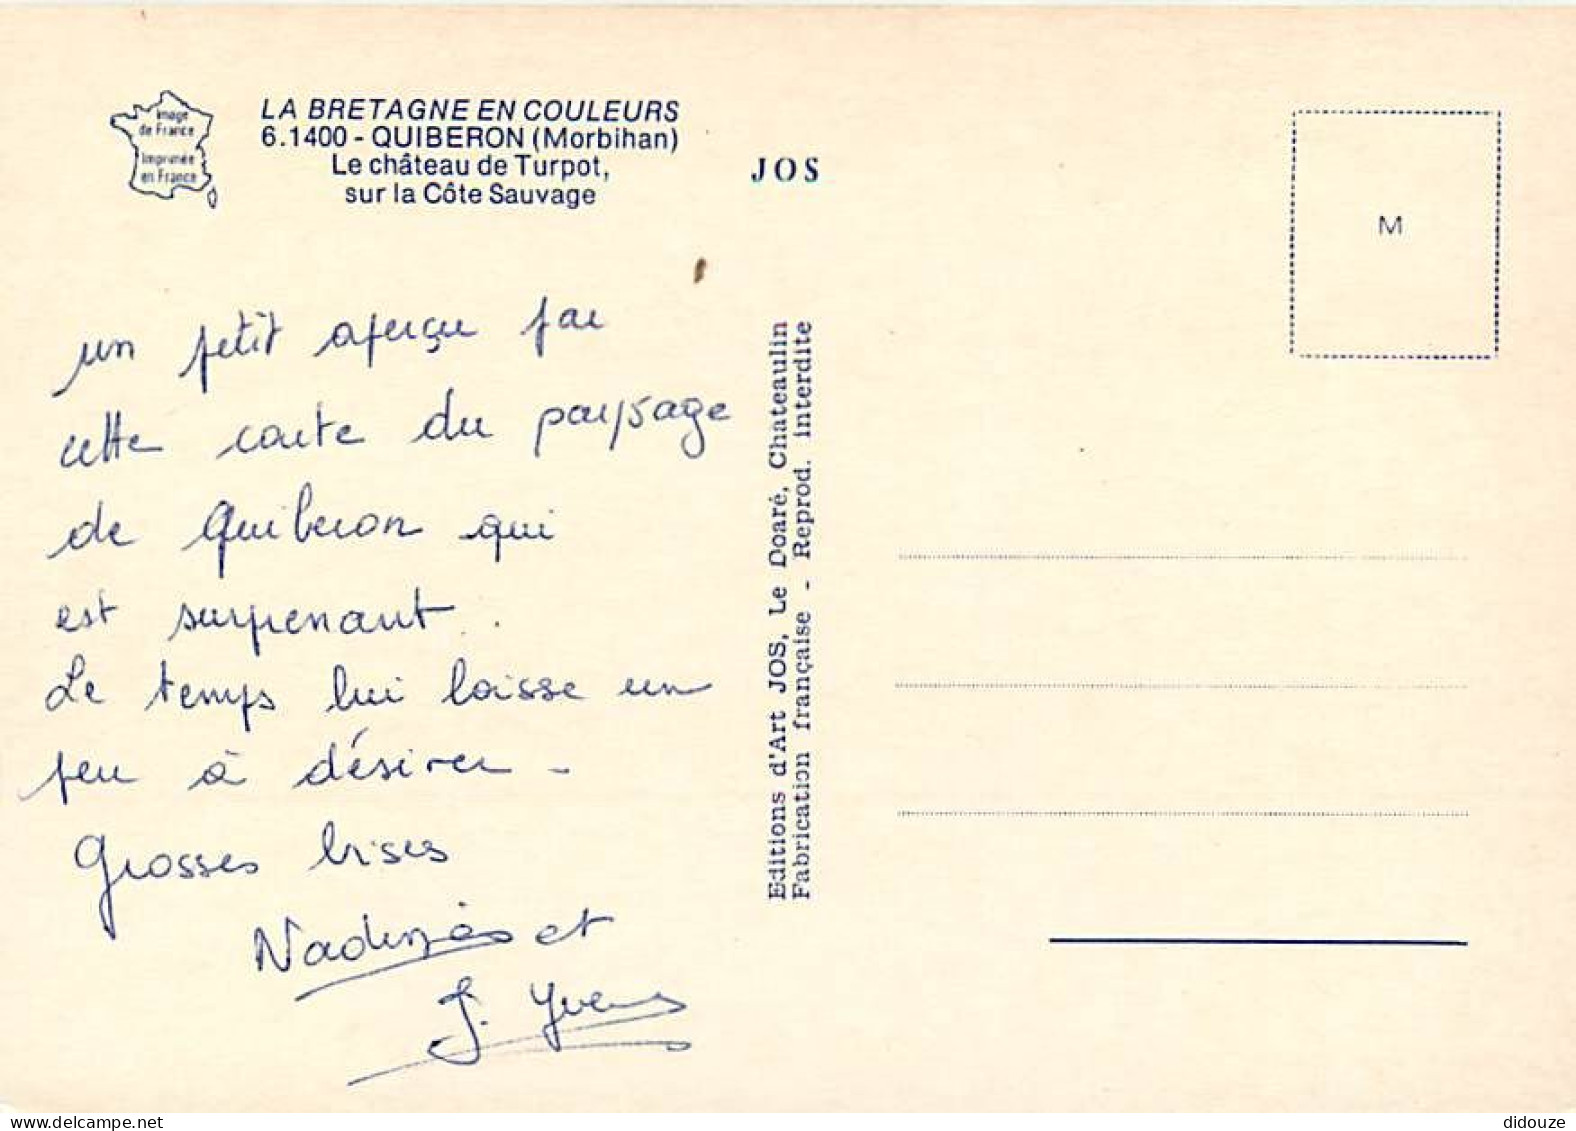 Image
de France
Imprimée
en France
LA BRETAGNE EN COULEURS
6.1400 - QUIBERON (Morbihan)
Le château de Turpot,
sur la Côte Sauvage
JOS
M
un petit aperçu par
cette carte du paysage
de Quiberon qui
est surprenant.
Le temps lui laisse un
peu à désirer -
Grosses bises
et
J. Yves
Editions d'Art JOS, Le Doaré, Chateaulin
Fabrication française - Reprod. interdite
didouze